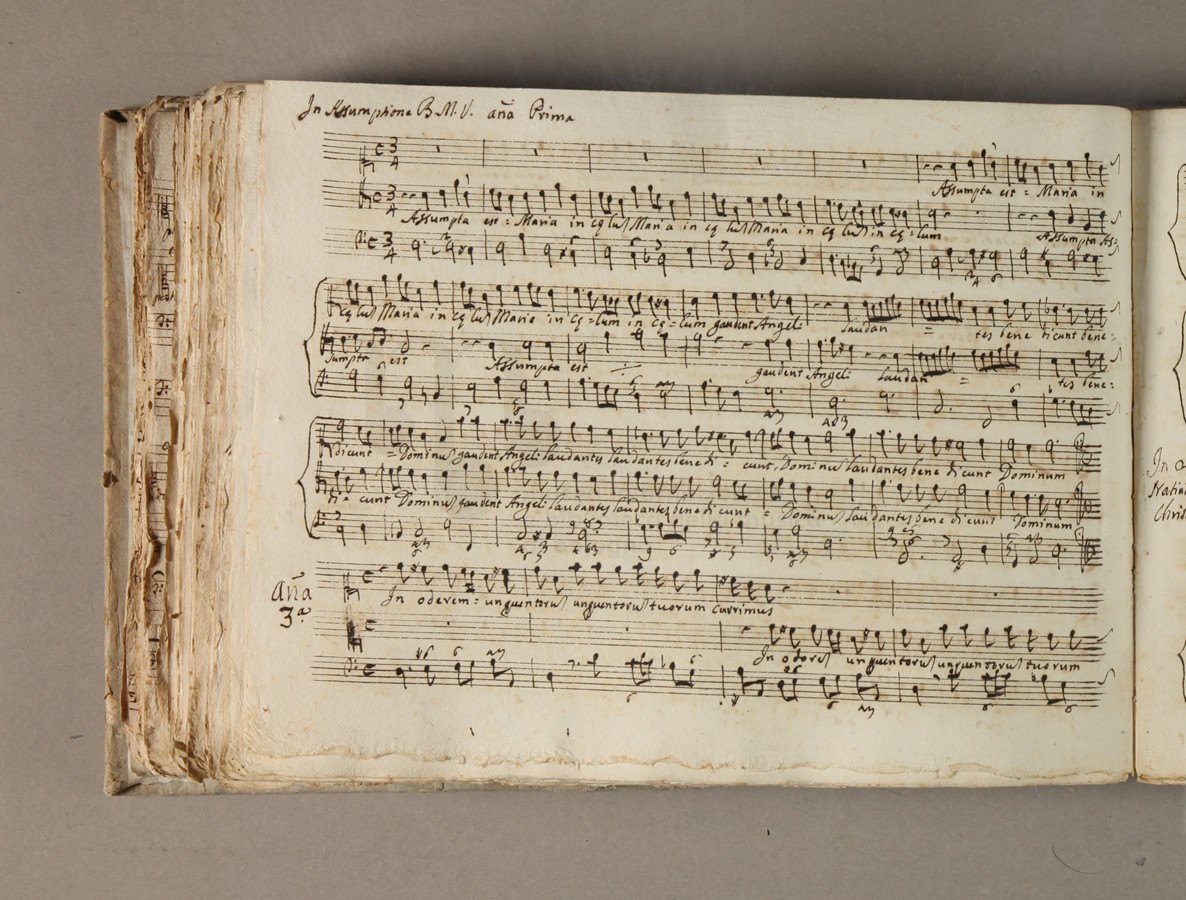 In Assumptione B.M.V. aña Prima
Assumpta est = Maria in
Assumpta est = Maria in cę luʃ Maria in cę luʃ Maria in cę luʃ in cę = lum Assumpta As:
cę luʃ Maria in cę luʃ Maria in cę = lum in cę = lum gaudent Angeli laudan = tes bene dicunt bene:
sumpta est Assumpta est gaudent Angeli laudan = tes bene:
dicunt = Dominuʃ gaudent Angeli laudantes laudantes bene di: cunt Dominuʃ laudantes bene dicunt Dominum
di = cunt Dominuʃ gaudent Angeli laudantes laudantes bene dicunt = Dominuʃ laudantes bene dicunt Dominum
aña
3ª
In odorem = unguentoruʃ unguentoruʃ tuorum currimus
In odoreʃ unguentoruʃ unguentoruʃ tuorum